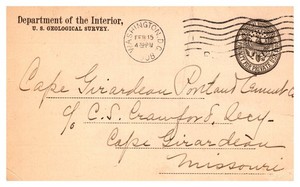 Department of the Interior,
U. S. GEOLOGICAL SURVEY.
WASHINGTON, D.C.
FEB 15
4 PM
Cape Girardeau Portland Cement Co
c/o C.S. Crawford, Secy-
Cape Girardeau
Missouri